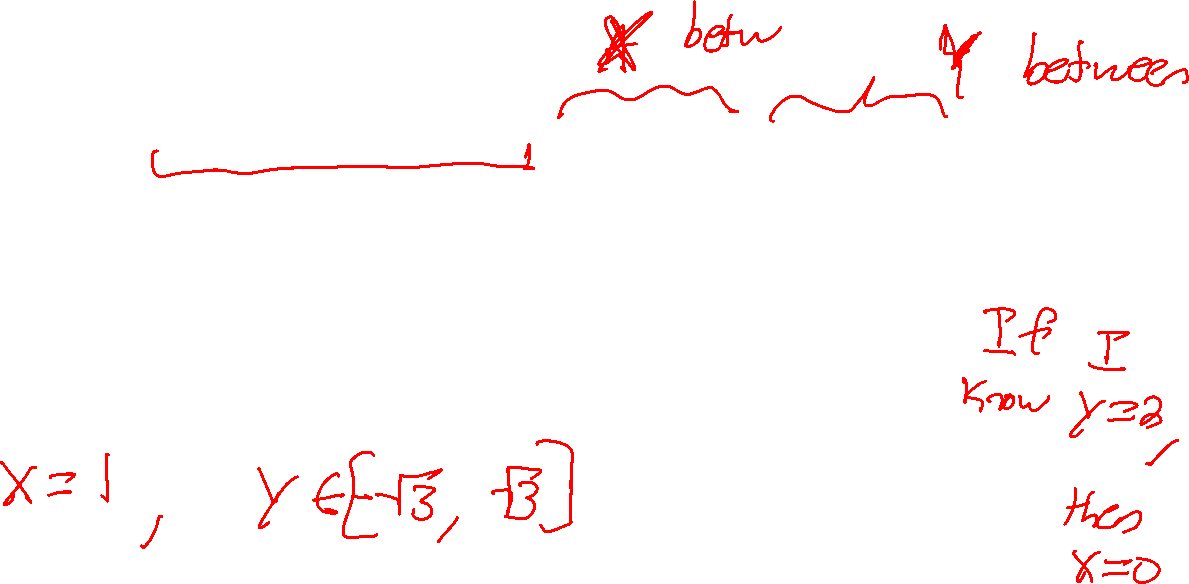 X betw
Y between
If I
know Y=2,
then
X=0
X=1, Y∈[-√3, √3]